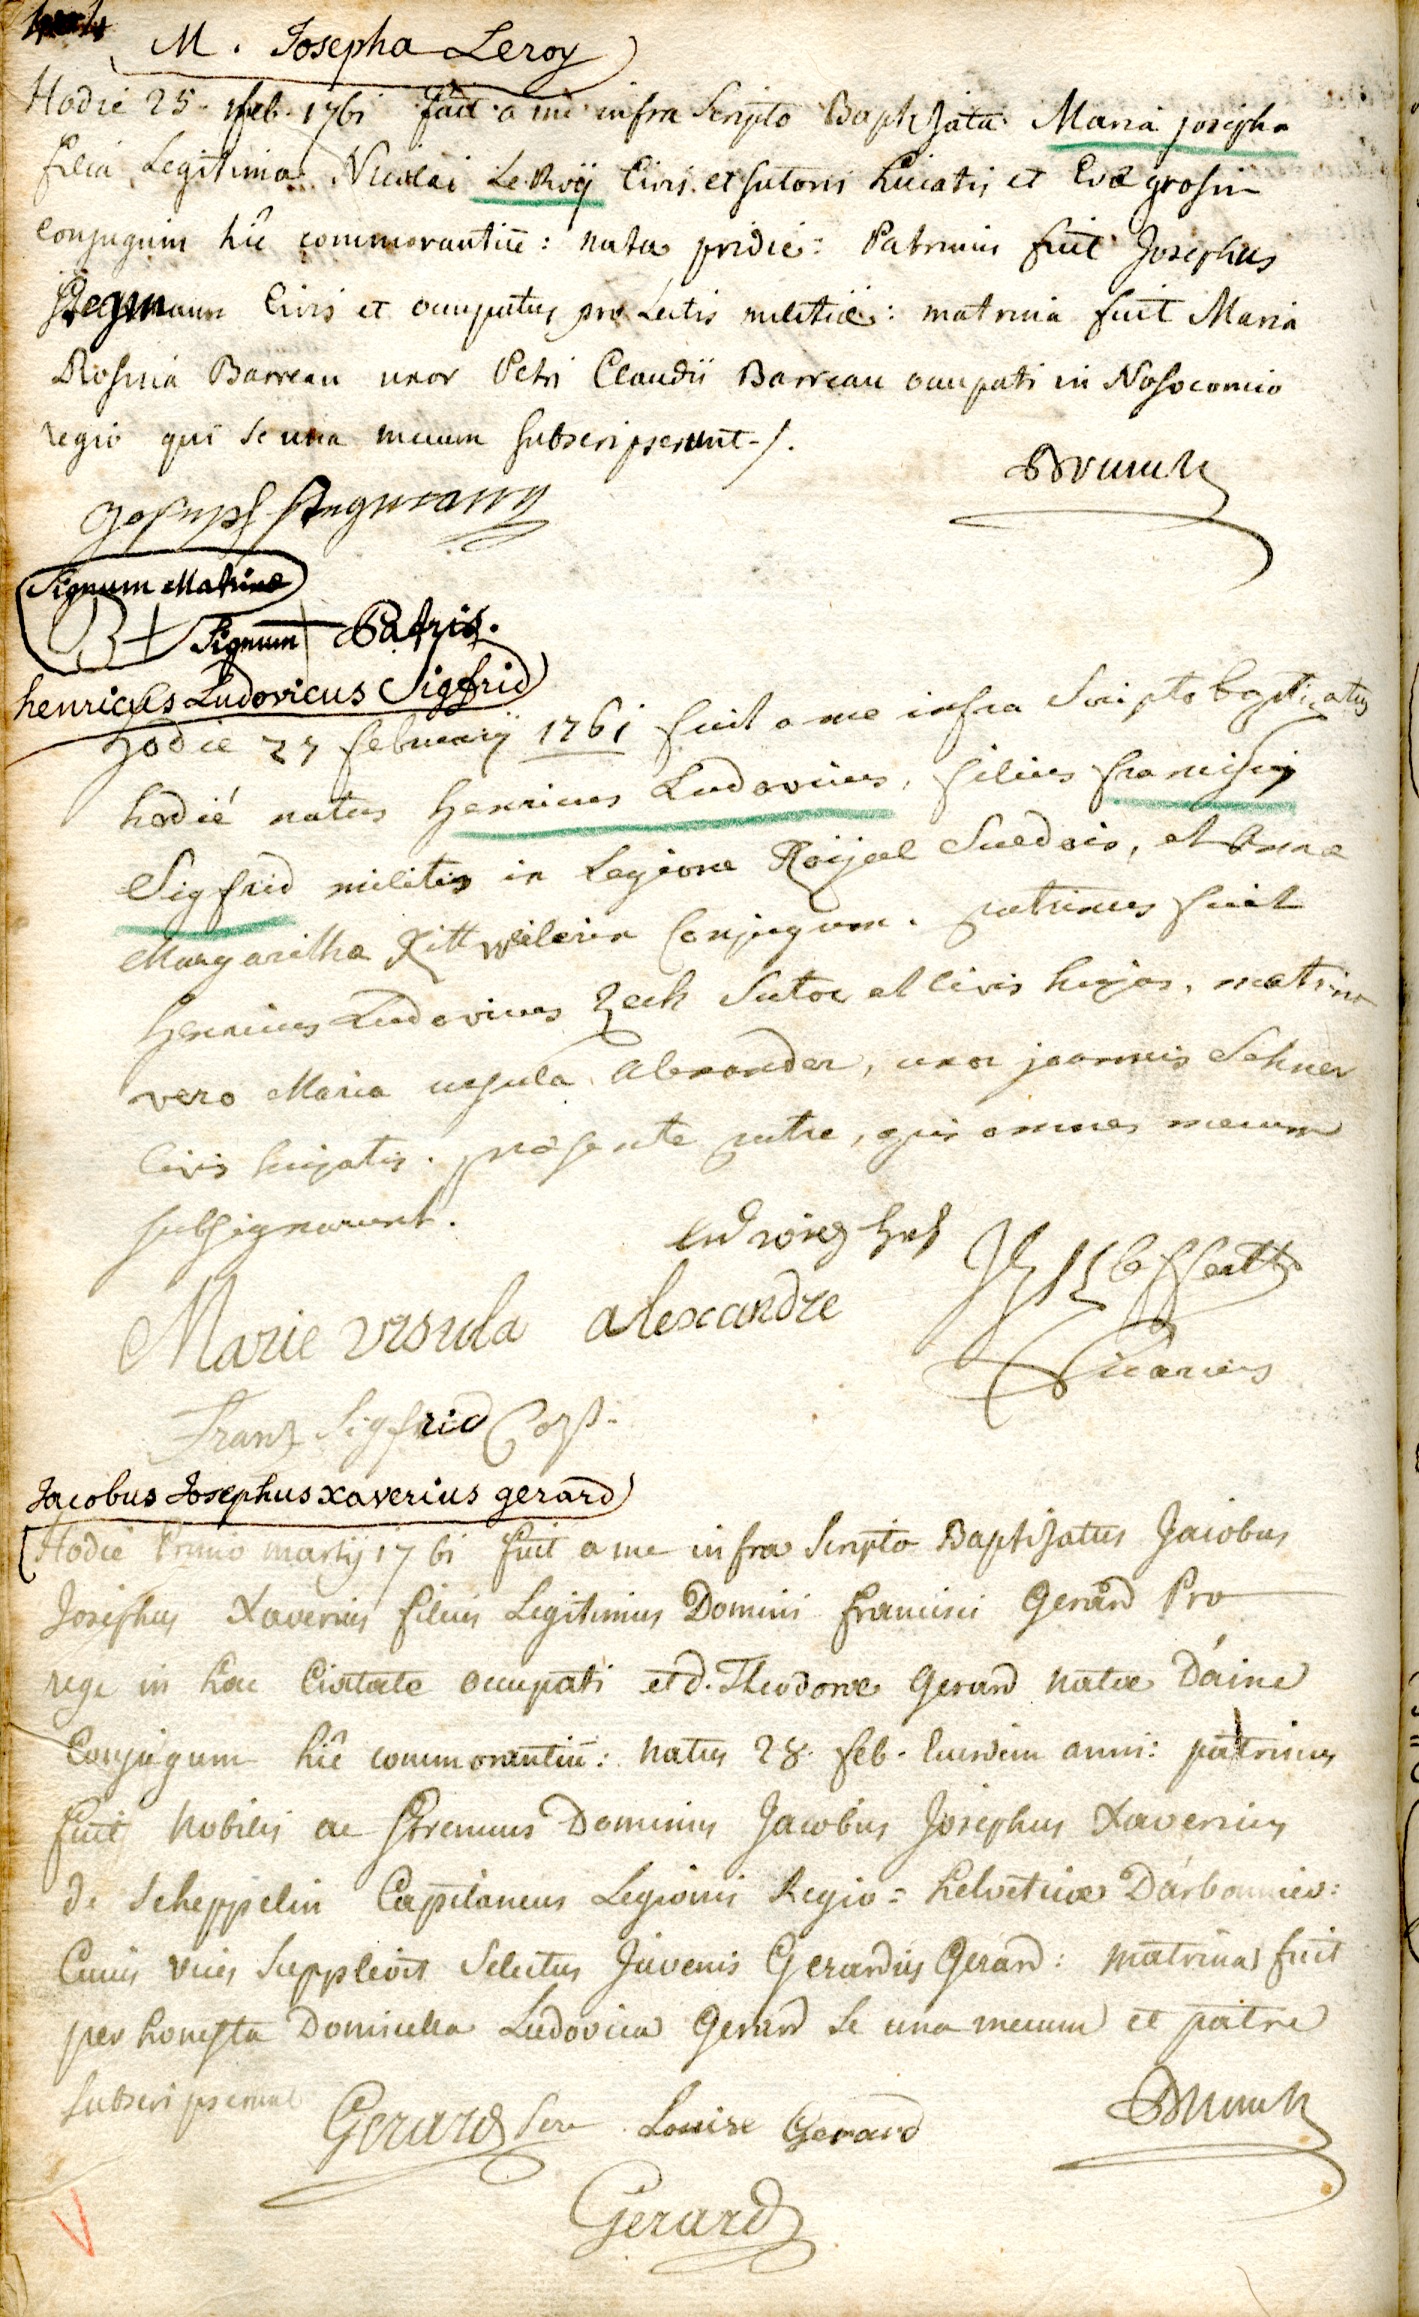 M. Josepha Leroy
Hodie 25 feb. 1761 fuit a me infra Scripto Baptizata Maria josepha
filia Legitima Nicolai Le Roÿ Civis et Sutoris huiatis et Evæ grosin
Conjugum hîc commorantiũ: nata pridie: Patrinus fuit Josephus
Stegmann Civis et occupatus pro Lectis militiæ: matrina fuit Maria
Rosina Barreau uxor Petri Claudii Barreau occupati in Nosocomio
regio qui se una mecum subscripserunt-/.
Brunck
Joseph Stegmann
Signum Matrinæ
+ Signum Patris.
henricus Ludovicus Sigfrid
hodie 27 februarij 1761 fuit a me infra Scripto baptizatus
hodié natus Henricus Ludovicus, filius francisci
Sigfrid militis in Legione Roijal Suedois, et Annæ
Margarithæ Rittweilerin Conjugum. patrinus fuit
Henricus Ludovicus Zech Sutor et Civis hujas, matrina
vero Maria ursula Alexander, uxor joannis Schner
Civis hujatis. præsente patre, qui omnes mecum
subsignarunt.
Ludwig
Marie Vrsula alexandre
Vicarius
Franz Sigfrid
Jacobus Josephus xaverius gerard
Hodie Primo martij 1761 fuit a me infra Scripto Baptizatus Jacobus
Josephus Xaverius filius Legitimus Domini francisci Gerard Pro
rege in hac Civitate occupati et d. Theodoræ Gerard natæ Daine
Conjugum hîc commorantiũ: natus 28. feb. Eiusdem anni: patrinus
fuit Nobilis ac Strenuus Dominus Jacobus Josephus Xaverius
de Scheppelin Capitaneus Legionis Regio= helveticæ
Cuius vices Supplevit Selectus Juvenis Gerardus Gerard: Matrina fuit
per honesta Domicella Ludovica Gerard se una mecum et patre
subscripserunt
Gerard Louise Gerard
Brunck
Gerard